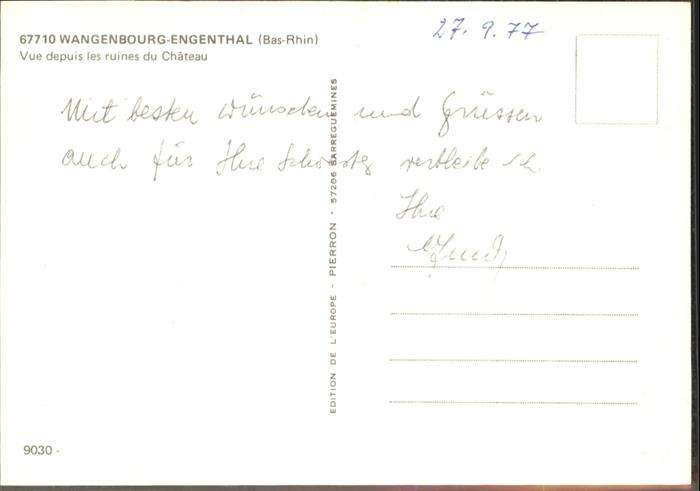 67710 WANGENBOURG-ENGENTHAL (Bas-Rhin)
Vue depuis les ruines du Château
27. 9. 77
Mit besten Wünschen und Grüssen
auch für Ihre verbleibe ich
Ihre
EDITION DE L'EUROPE - PIERRON - 57206 SARREGUEMINES
9030 -